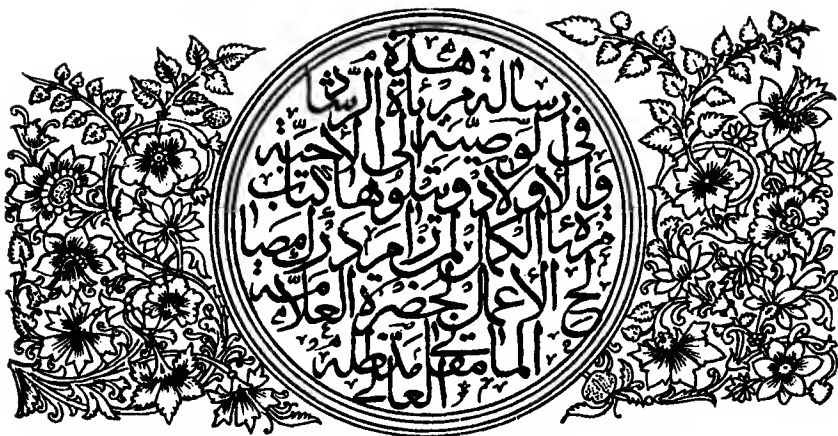 هذه
رسالة مرءاة الرّشاد
في الوصيّة إلى الأحبّة
والأولاد ويتلوها كتاب
مرءاة الكمال لمن رام درك مصا
لح الأعمال لحضرة العلّامة
المامقاني مدّ ظله
العالي